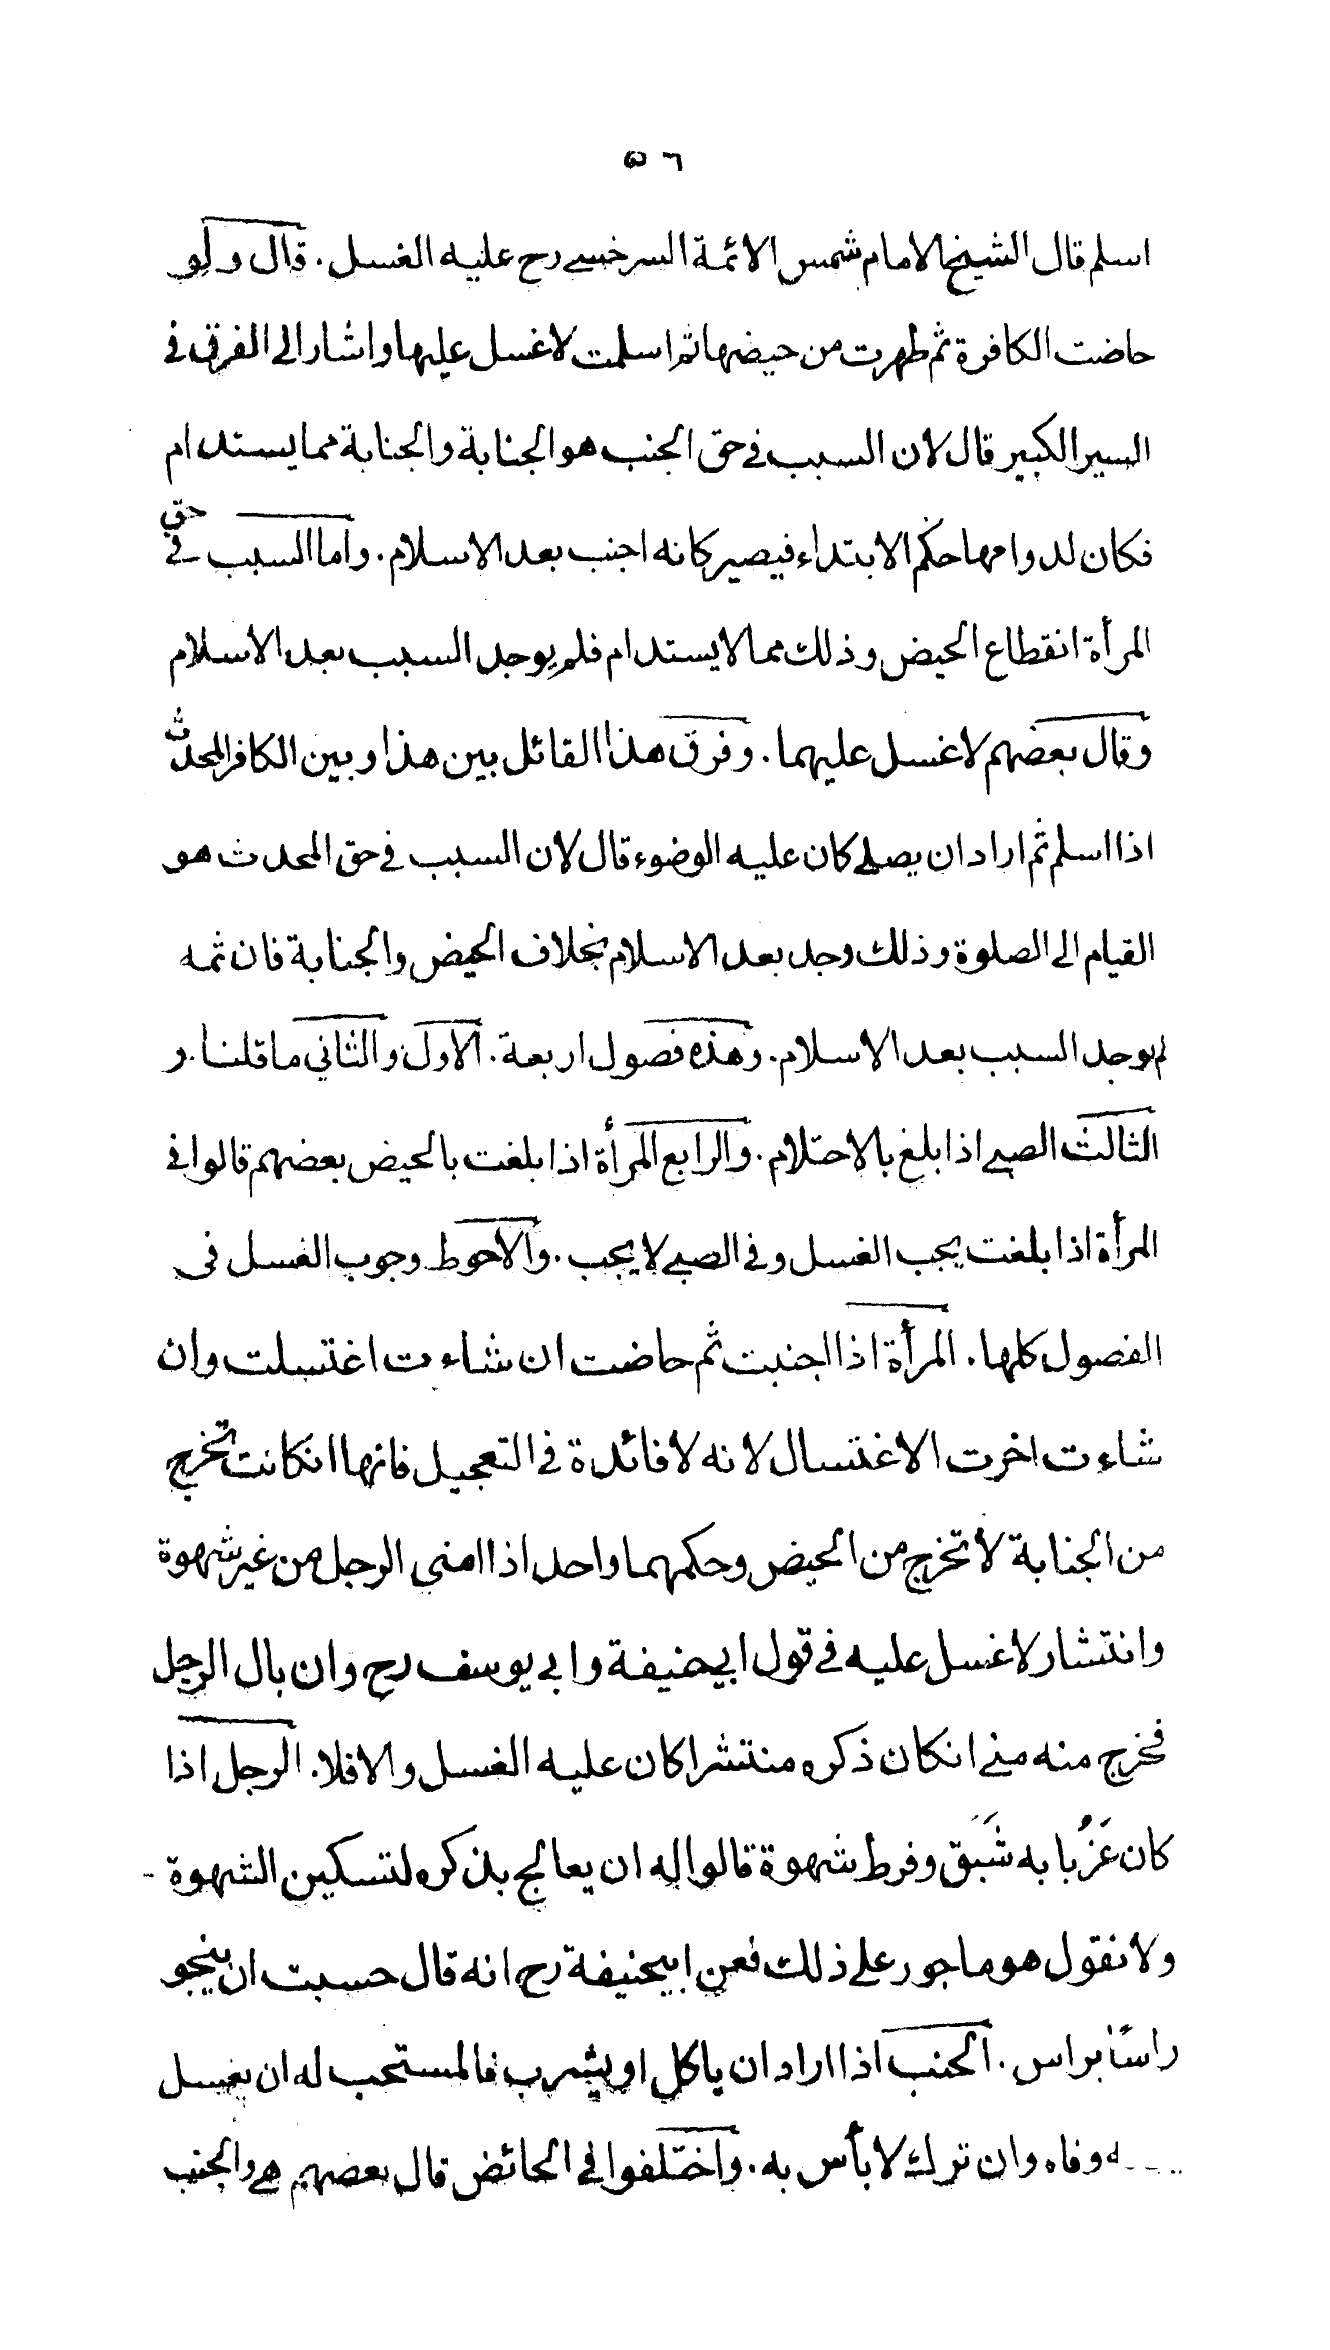 ٥٦
اسلم قال الشيخ الامام شمس الائمة السرخسي رح عليه الغسل . قال ولو
حاضت الكافرة ثم طهرت من حيضها ثم اسلمت لا غسل عليها واشار الى الفرق في
السير الكبير قال لان السبب في حق الجنب هو الجنابة والجنابة مما يستدام
فكان لدوامها حكم الابتداء فيصير كانه اجنب بعد الاسلام . واما السبب في حق
المرأة انقطاع الحيض وذلك مما لا يستدام فلم يوجد السبب بعد الاسلام
وقال بعضهم لا غسل عليهما . وفرق هذا القائل بين هذا وبين الكافر المحدث
اذا اسلم ثم اراد ان يصلي كان عليه الوضوء قال لان السبب في حق المحدث هو
القيام الى الصلوة وذلك وجد بعد الاسلام بخلاف الحيض والجنابة فان ثمه
لم يوجد السبب بعد الاسلام . وهذه فصول اربعة . الاول والثاني ما قلنا . و
الثالث الصبي اذا بلغ بالاحتلام . والرابع المرأة اذا بلغت بالحيض بعضهم قالوا في
المرأة اذا بلغت يجب الغسل وفي الصبي لا يجب . والاحوط وجوب الغسل في
الفصول كلها . المرأة اذا اجنبت ثم حاضت ان شاءت اغتسلت وان
شاءت اخرت الاغتسال لانه لا فائدة في التعجيل فانها انكانت تخرج
من الجنابة لا تخرج من الحيض وحكمهما واحد اذا امنى الرجل من غير شهوة
وانتشار لا غسل عليه في قول ابي حنيفة وابي يوسف رح وان بال الرجل
فخرج منه مني انكان ذكره منتشرا كان عليه الغسل والا فلا . الرجل اذا
كان عَزُبا به شَبَق وفرط شهوة قالوا له ان يعالج بذكره لتسكين الشهوة
ولا نقول هو ماجور على ذلك فعن ابي حنيفة رح انه قال حسبت ان ينجو
راسًا براس . الجنب اذا اراد ان ياكل او يشرب فالمستحب له ان يغسل
وفاه وان ترك لا بأس به . واختلفوا في الحائض قال بعضهم هي والجنب